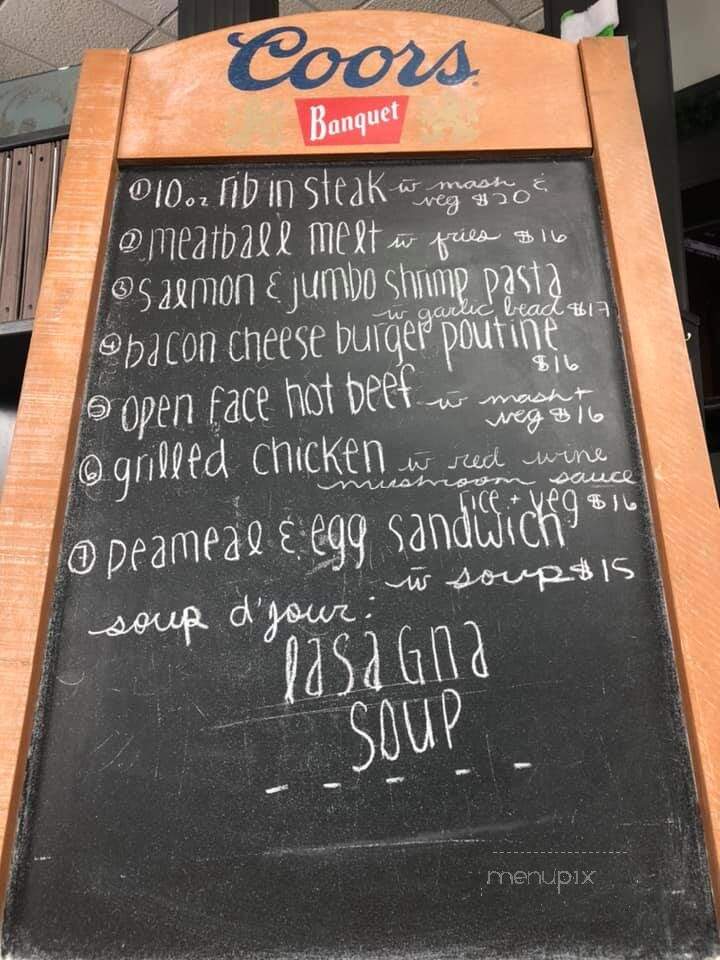 Coors
Banquet
① 10oz rib in steak w̄ mash &
veg $20
② meatball melt w̄ fries $16
③ salmon & jumbo shrimp pasta
w̄ garlic bread $17
④ bacon cheese burger poutine
$16
⑤ open face hot beef w̄ mash +
veg $16
⑥ grilled chicken w̄ red wine
mushroom sauce
rice + veg $16
⑦ peameal & egg sandwich
w̄ soup $15
soup d'jour:
lasagna
soup
menupix